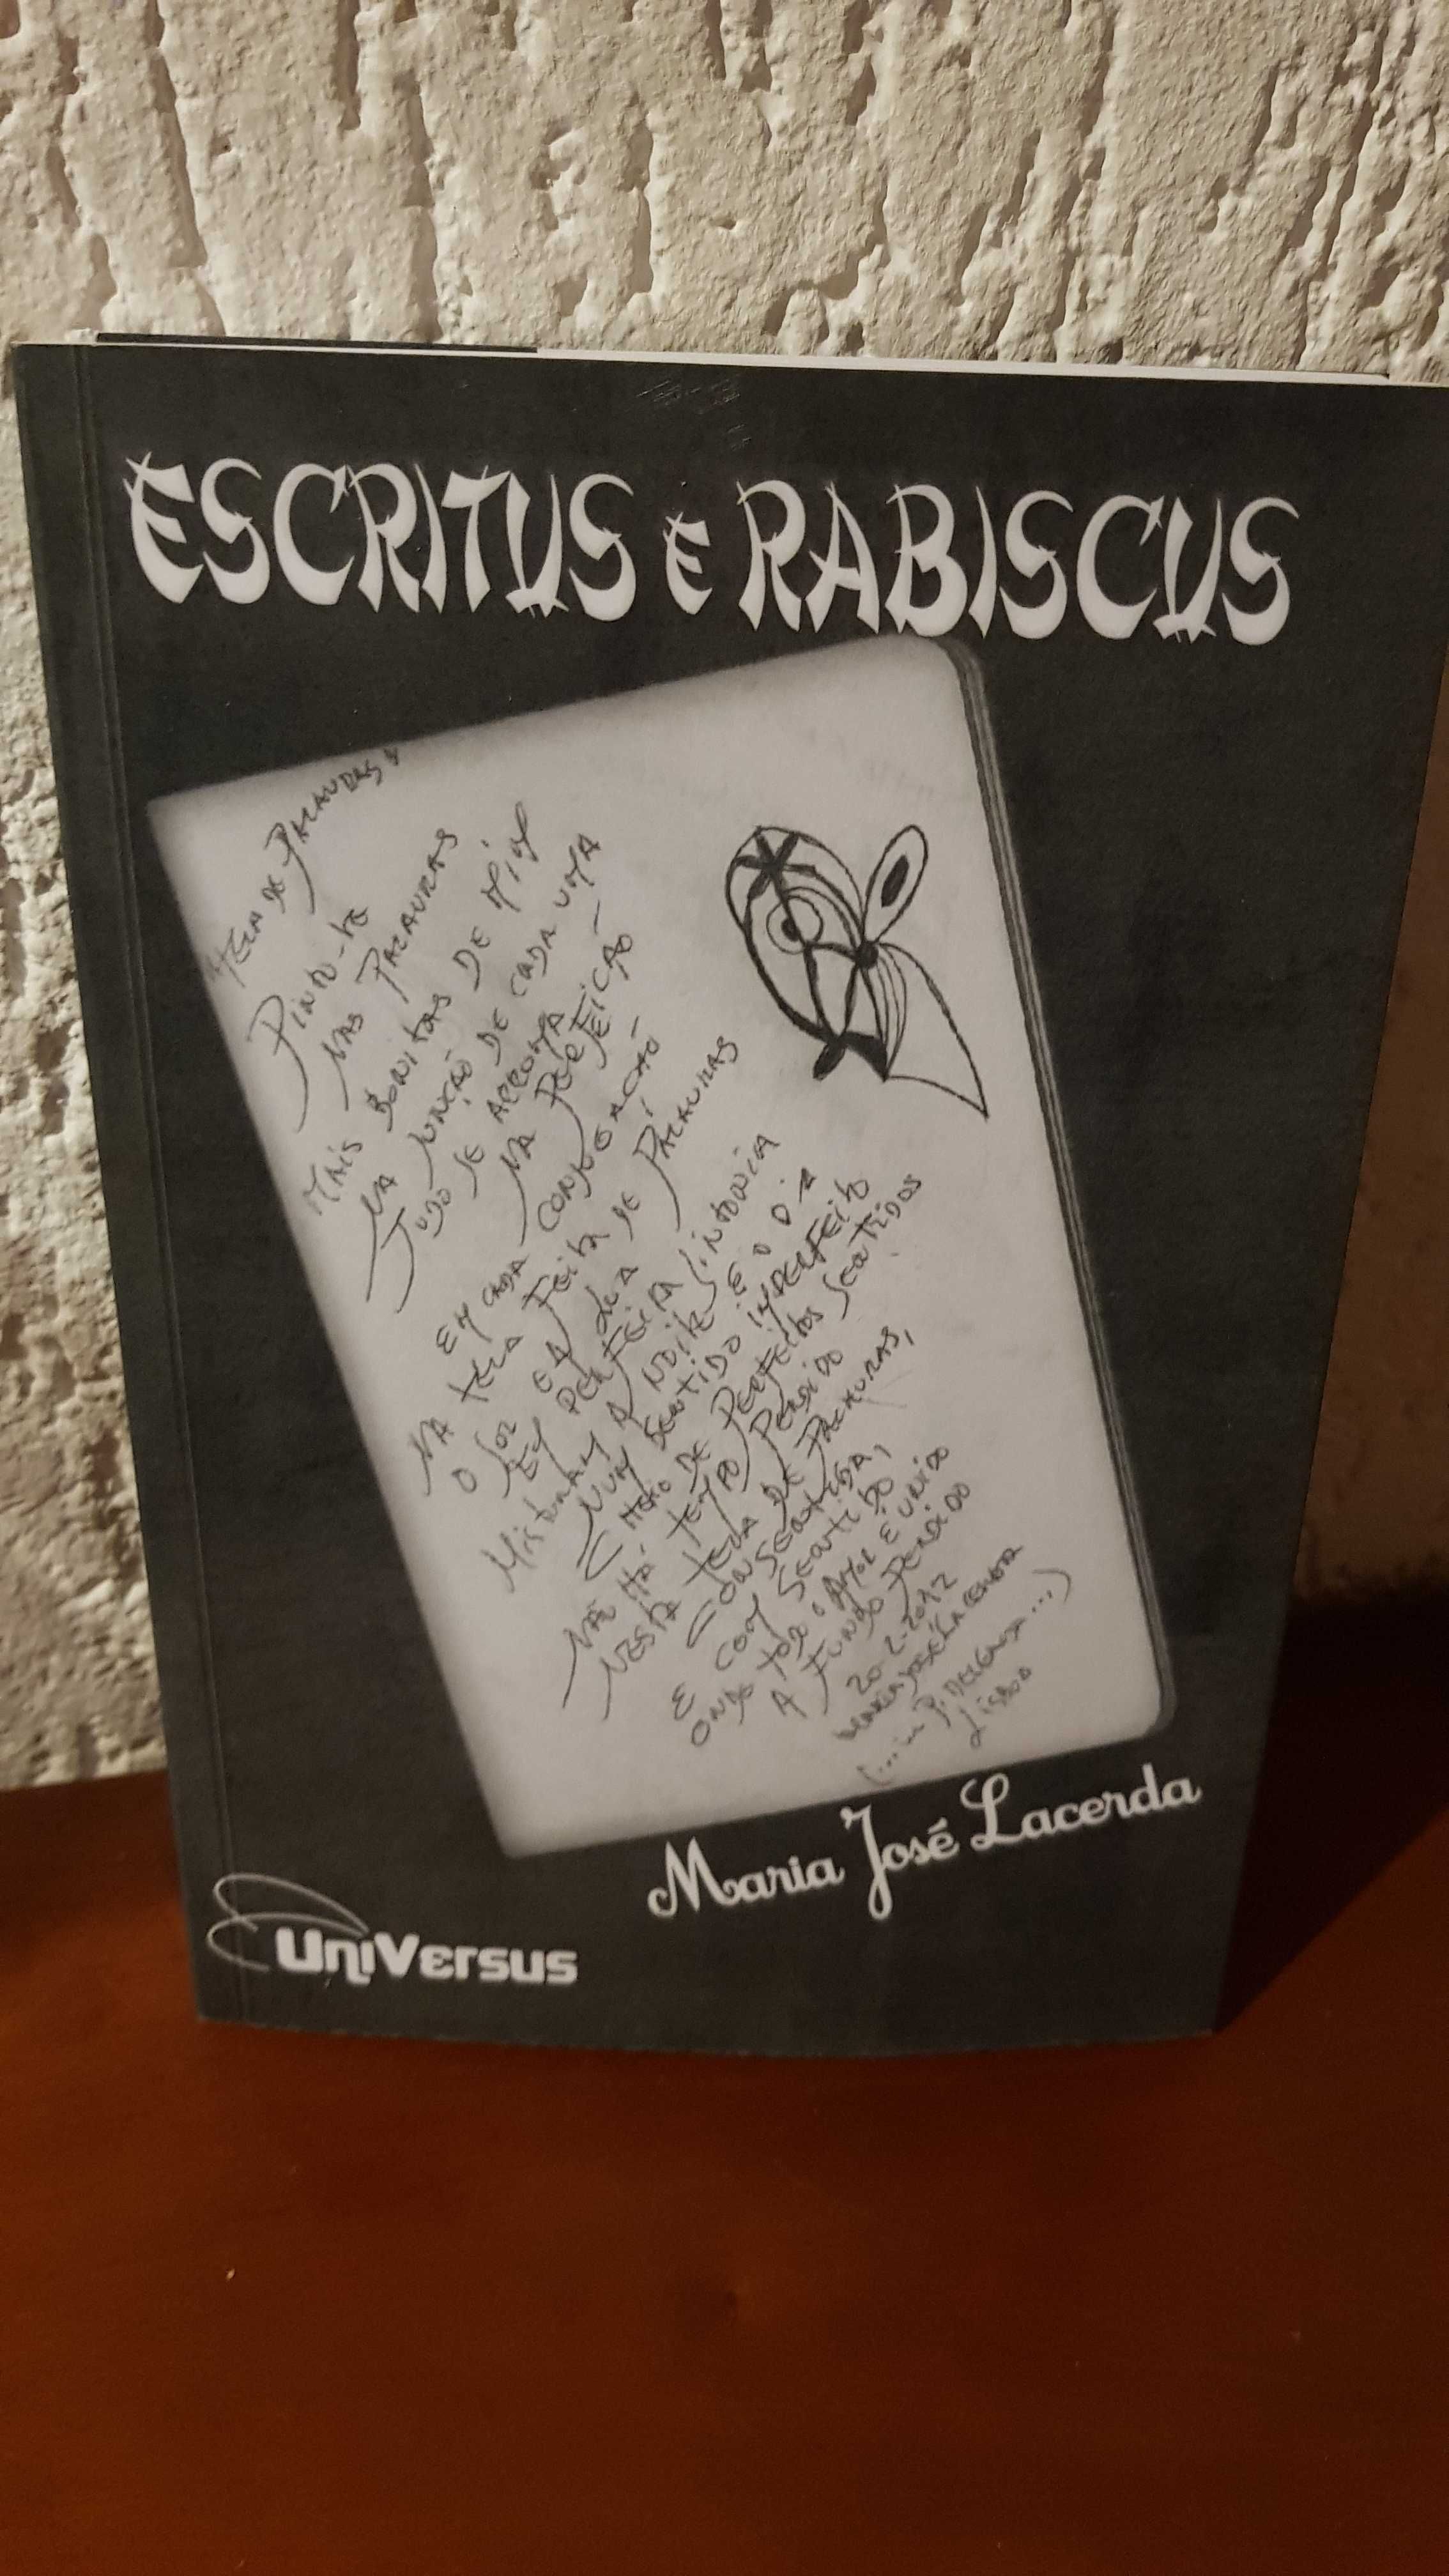 ESCRITUS E RABISCUS
"TELA DE PALAVRAS"
PINTO-TE
NAS PALAVRAS
MAIS BONITAS DE MIM
NA JUNÇÃO DE CADA UMA
TUDO SE ARRUMA
NA PERFEIÇÃO
EM CADA CONJUGAÇÃO
NA TELA FEITA DE PALAVRAS
O SOL E A LUA
EM PERFEITA SINTONIA
MISTURAM A NOITE E O DIA
NUM SENTIDO IMPERFEITO
CHEIO DE PERFEITOS SENTIDOS
NÃO HÁ TEMPO PERDIDO
NESTA TELA DE PALAVRAS,
CONSENTIDA,
E COM SENTIDO
ONDE TODO O AMOR É UNIDO
A FUNDO PERDIDO
20-2-2012
MARIA JOSÉ LACERDA
(... in P. DELGADA ...)
LISBOA
Maria José Lacerda
UniVersus